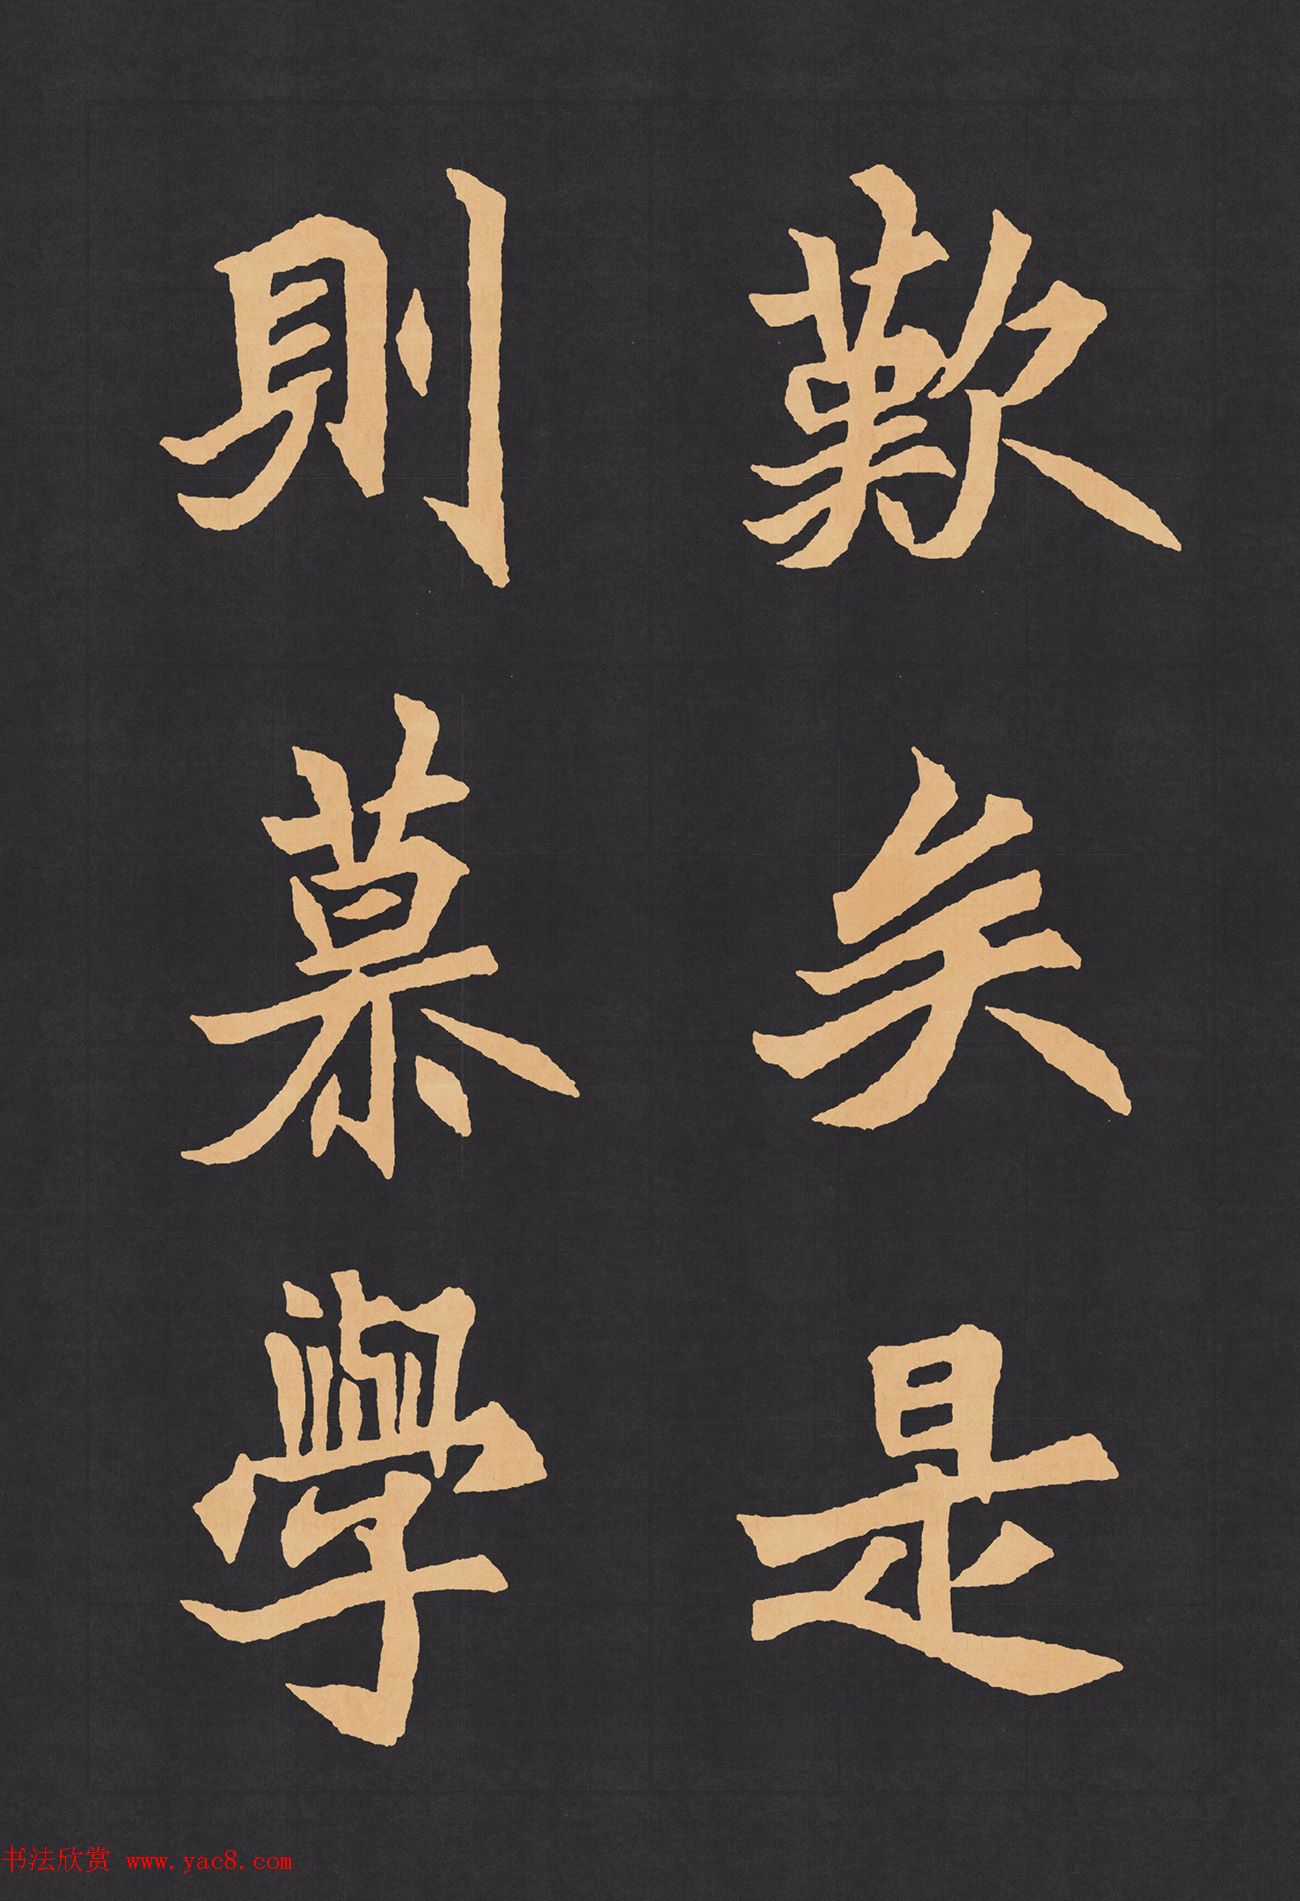 歎矣是
則慕學
书法欣赏 www.yac8.com